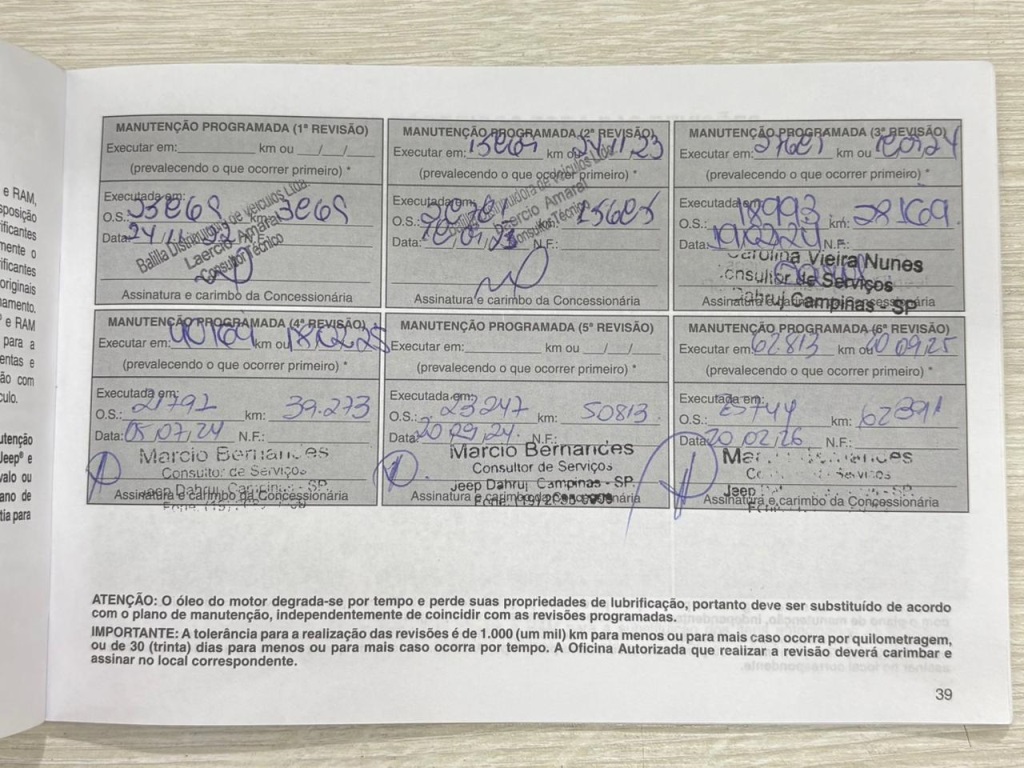 e RAM,
sposição
rificantes
mente o
ificantes
originais
namento.
® e RAM
para a
entas e
ão com
culo.
utenção
Jeep® e
valo ou
ano de
tia para
MANUTENÇÃO PROGRAMADA (1ª REVISÃO)
Executar em: km ou / /
(prevalecendo o que ocorrer primeiro) *
Executada em:
O.S.: km:
Data: 24
Balilla Distribuidora de Veículos Ltda.
Laercio Amaral
Consultor Técnico
Assinatura e carimbo da Concessionária
MANUTENÇÃO PROGRAMADA (2ª REVISÃO)
Executar em: km ou 24/11/23
(prevalecendo o que ocorrer primeiro) *
Executada em:
O.S.: km:
Data: N.F.:
Distribuidora de Veículos Ltda
Laercio Amaral
Consultor Técnico
Assinatura e carimbo da Concessionária
MANUTENÇÃO PROGRAMADA (3ª REVISÃO)
Executar em: km ou
(prevalecendo o que ocorrer primeiro) *
Executada em:
O.S.: 18993 km: 28169
Data: N.F.:
Carolina Vieira Nunes
Consultor de Serviços
Dahruj Campinas - SP
Assinatura e carimbo da Concessionária
MANUTENÇÃO PROGRAMADA (4ª REVISÃO)
Executar em: km ou
(prevalecendo o que ocorrer primeiro) *
Executada em:
O.S.: 21797 km: 39.273
Data: 05/07/24 N.F.:
Marcio Bernardes
Consultor de Serviços
Jeep Dahruj Campinas - SP
Assinatura e carimbo da Concessionária
MANUTENÇÃO PROGRAMADA (5ª REVISÃO)
Executar em: km ou / /
(prevalecendo o que ocorrer primeiro) *
Executada em:
O.S.: 23247 km: 50813
Data: 20 09 24 N.F.:
Marcio Bernardes
Consultor de Serviços
Jeep Dahruj Campinas - SP
Assinatura e carimbo da Concessionária
MANUTENÇÃO PROGRAMADA (6ª REVISÃO)
Executar em: 62.813 km ou 20 09 25
(prevalecendo o que ocorrer primeiro) *
Executada em:
O.S.: km:
Data: 20 02 26 N.F.:
Jeep
Assinatura e carimbo da Concessionária
ATENÇÃO: O óleo do motor degrada-se por tempo e perde suas propriedades de lubrificação, portanto deve ser substituído de acordo
com o plano de manutenção, independentemente de coincidir com as revisões programadas.
IMPORTANTE: A tolerância para a realização das revisões é de 1.000 (um mil) km para menos ou para mais caso ocorra por quilometragem,
ou de 30 (trinta) dias para menos ou para mais caso ocorra por tempo. A Oficina Autorizada que realizar a revisão deverá carimbar e
assinar no local correspondente.
39